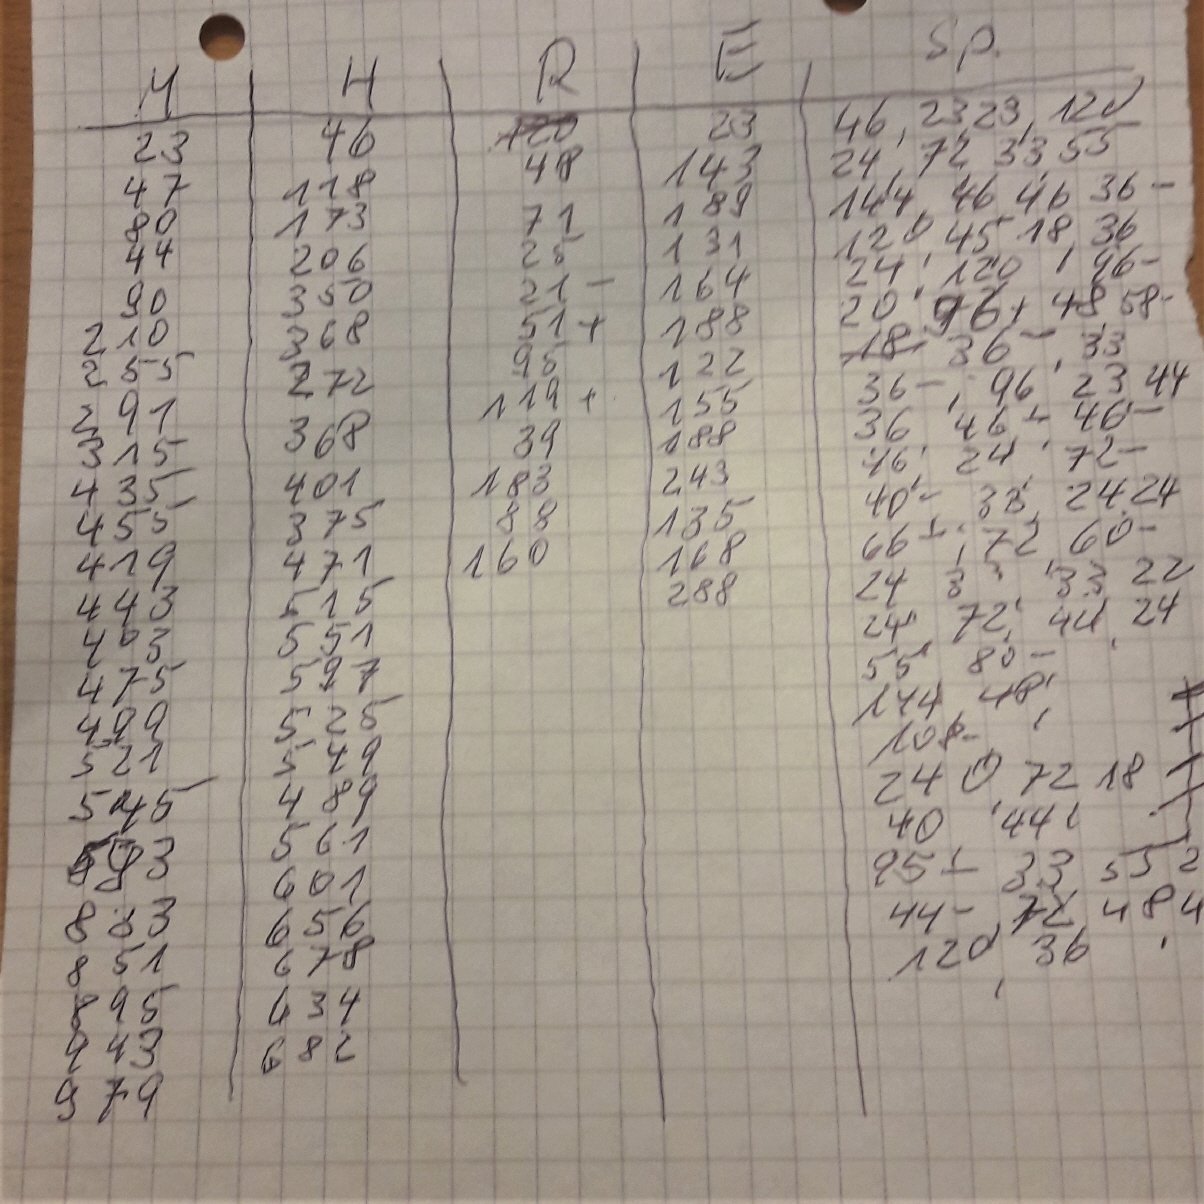 M H R E Sp.
23 46 23 46, 23 23, 120
47 118 48 143 24, 72, 33, 55
80 173 71 189 144, 46, 46 36-
44 206 25 131 120, 45, 18, 36
90 350 21- 164 24, 120, 96-
210 368 51+ 188 20, 96+ 48 58-
255 272 95 122 18- 36-, 33
291 368 119+ 155 36-, 96, 23 44
315 401 39 188 36, 46+ 46-
435 375 183 243 46, 24, 72-
455 471 88 135 40-, 33, 24 24
419 515 160 168 66+, 72, 60-
443 551 288 24, 33, 22
463 597 24, 72, 44, 24
475 525 55, 80-
499 549 144, 48,
521 489 108-,
545 561 24 0, 72 18
593 601 40, 44,
833 656 95+ 33, 55 2
851 678 44-, 72, 48 4
895 634 120, 36,
943 682
979